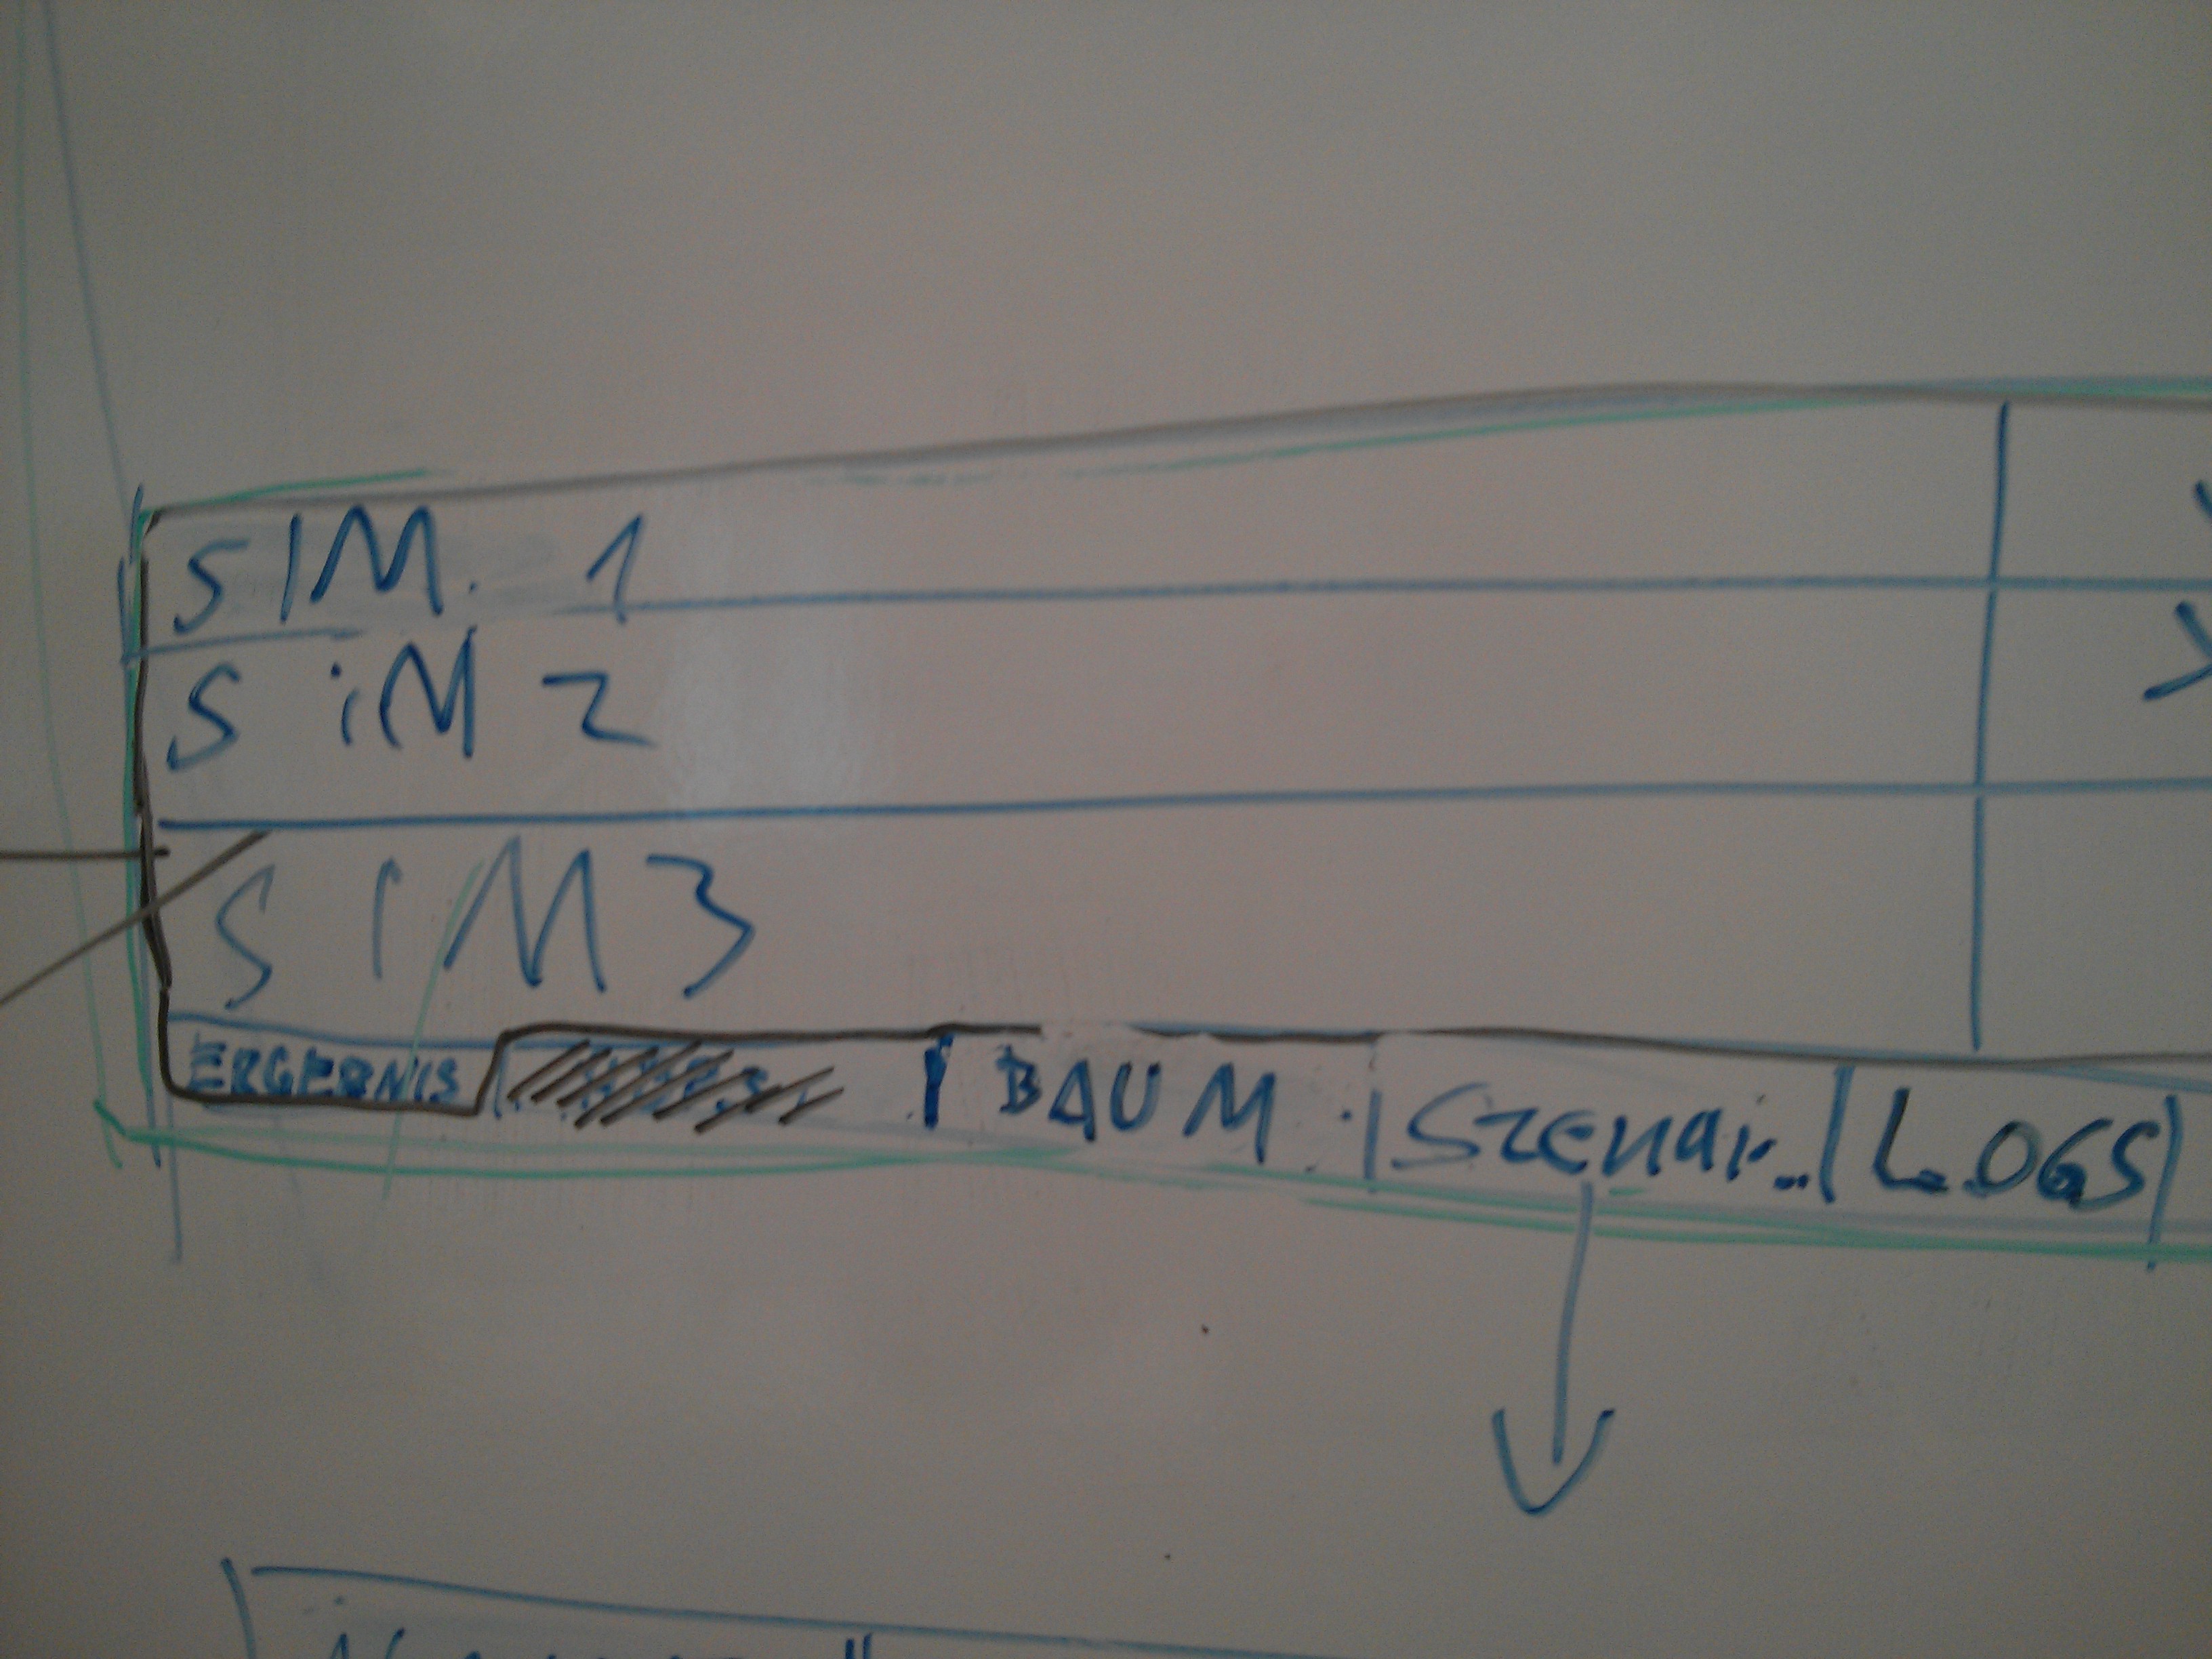 SIM. 1
SiM 2
SIM 3
ERGEBNIS BAUM Szenar... LOGS